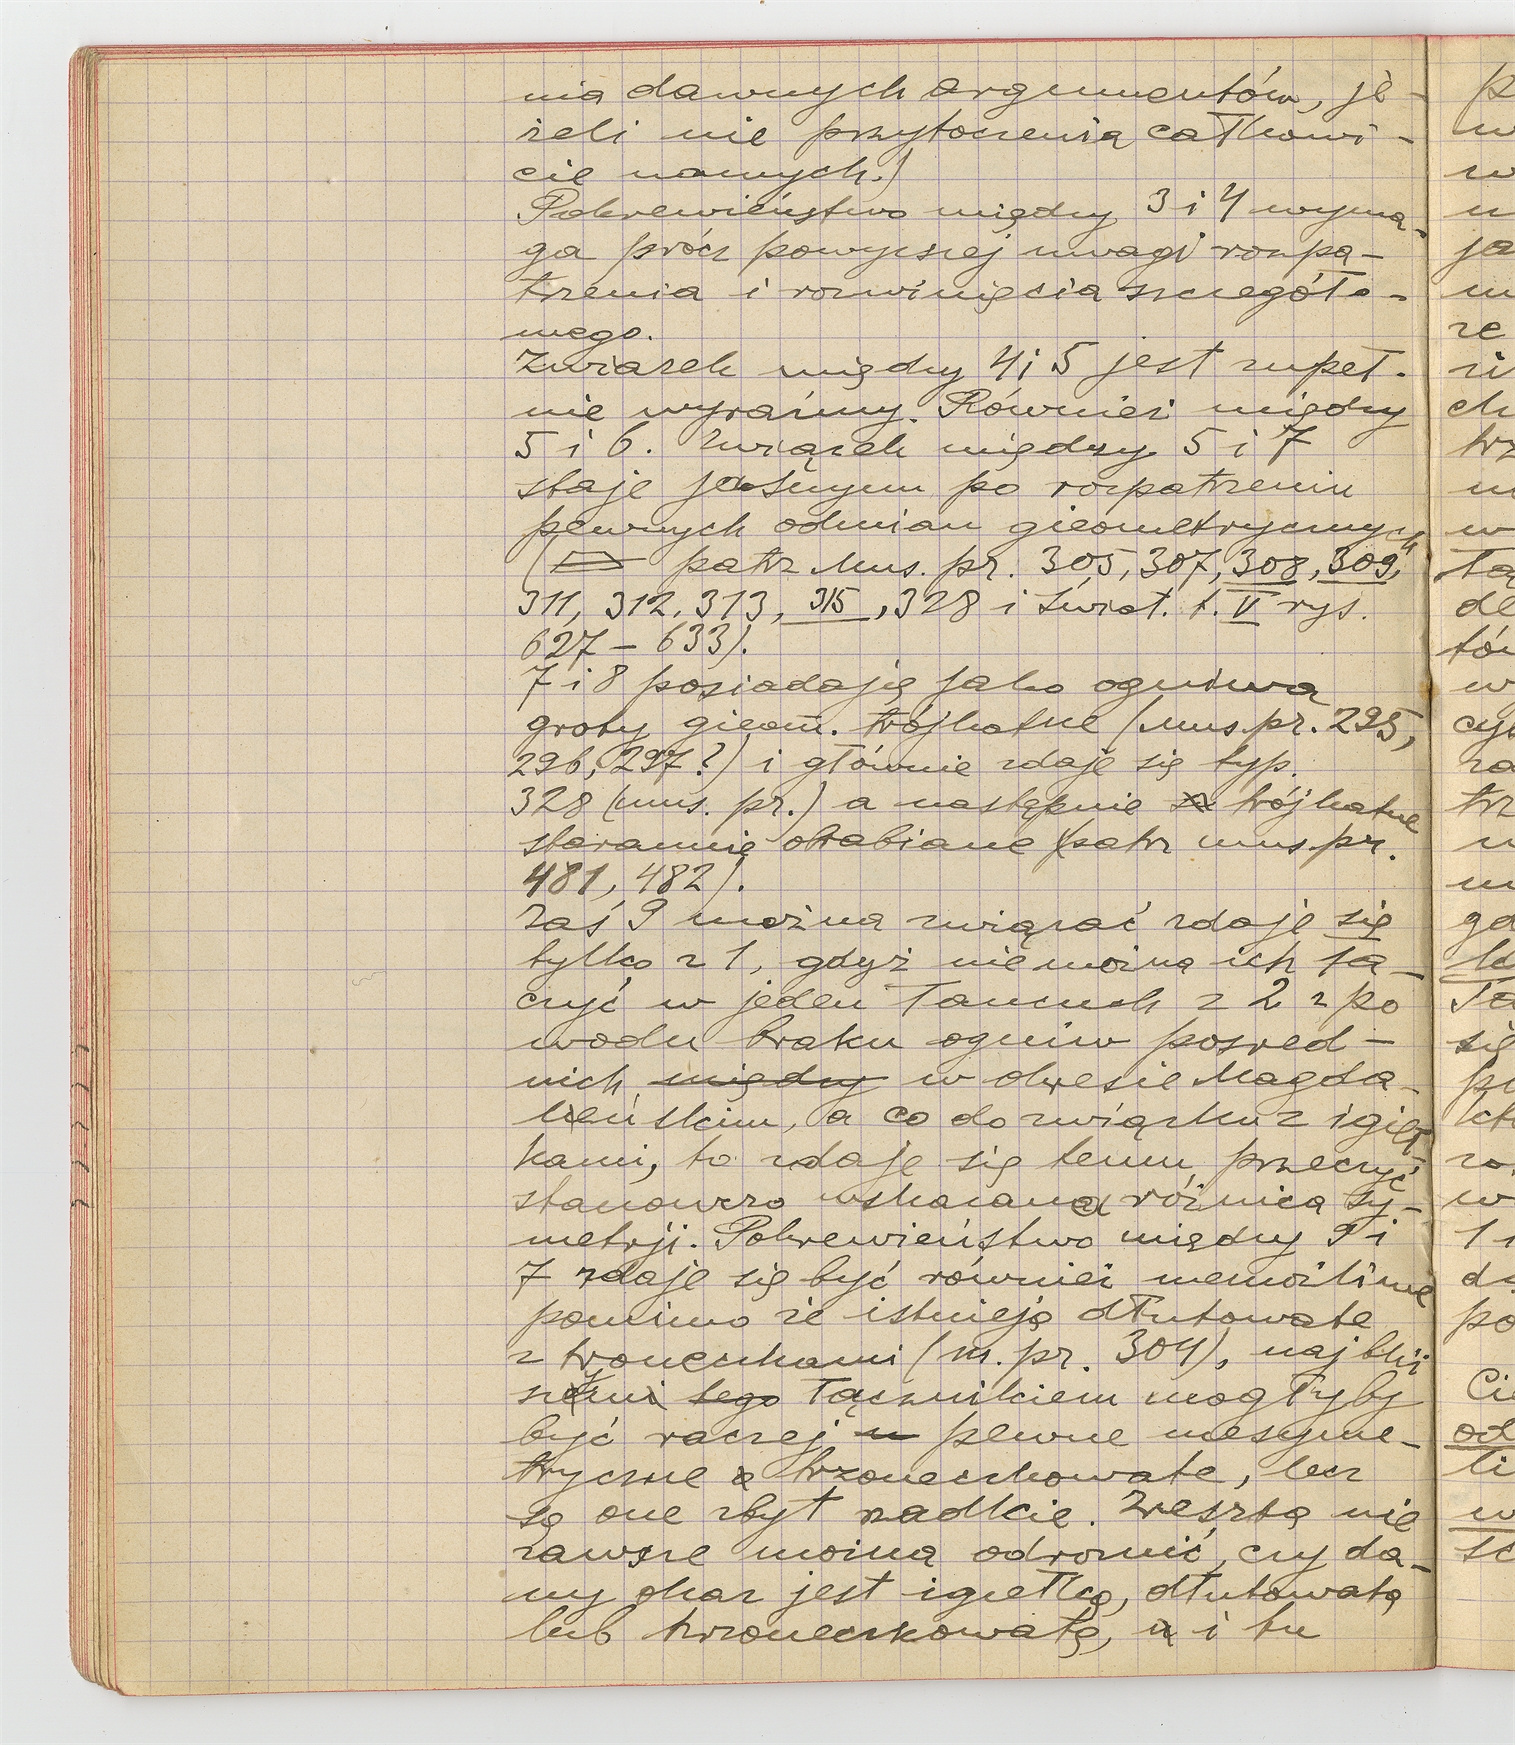 nia dawnych argumentów, je-
żeli nie przytoczenia całkowi-
cie nowych.)
Pokrewieństwo między 3 i 4 wyma-
ga prócz powyższej uwagi rozpa-
trzenia i rozwinięcia szczegóło-
wego.
Związek między 4 i 5 jest zupeł-
nie wyraźny. Również między
5 i 6. Związek między 5 i 7
staje jasnym po rozpatrzeniu
pewnych odmian gieometrycznych
( patrz Mus. pr. 305, 307, 308, 309,
311, 312, 313, 315, 328 i Świat. t. V rys.
627 – 633).
7 i 8 posiadają jako ogniwa
groty gieom. trójkątne (mus pr. 295,
296, 297?) i głównie zdaje się typ.
328 (mus. pr.) a następnie trójkątne
starannie obrabiane (patrz mus pr.
481, 482).
Zaś 9 można związać zdaje się
tylko z 1, gdyż nie można ich łą-
czyć w jeden łańcuch z 2 z po
wodu braku ogniw pośred-
nich między w okresie Magda-
leńskim, a co do związku z igieł-
kami, to zdaje się temu przeczyć
stanowczo wskazana różnica sy-
metrji. Pokrewieństwo między 9 i
7 zdaje się być również niemożliwe
pomimo że istnieją dłutowate
z trzoneczkami (m. pr. 304), najbliż
szym tego łącznikiem mogłyby
być raczej pewne niesyme-
tryczne trzoneczkowate, lecz
są one zbyt rzadkie. Zresztą nie
zawsze można odróżnić, czy da-
ny okaz jest igiełką, dłutowatą
lub trzoneczkowatą, i tu